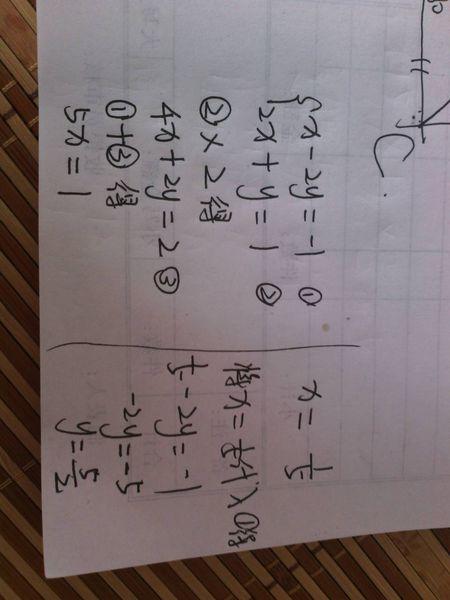 C.
{x-2y=-1 ①
2x+y=1 ②
②×2得
4x+2y=2③
①+③得
5x=1
x=1/5
将x=1/5代入①得
1/5-2y=-1
-2y=-5
y=5/2